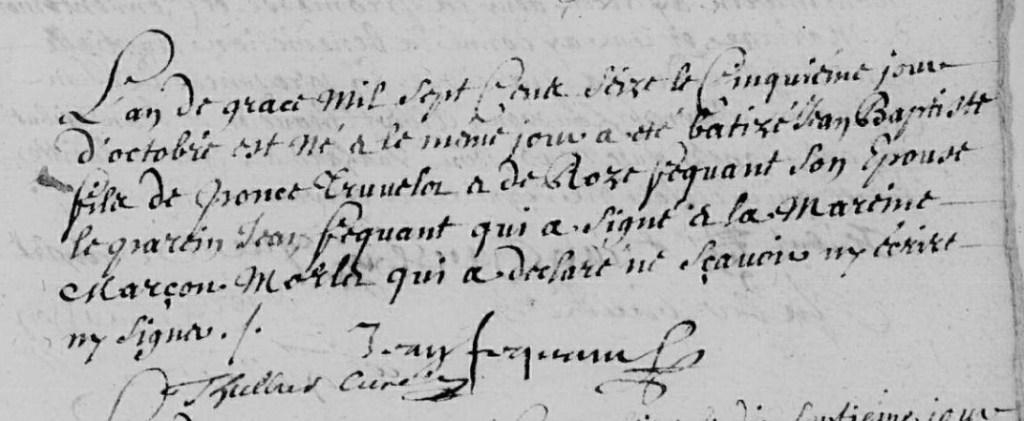 L'an de grace Mil Sept Cent Séize le Cinquiéme jour
d'octobre est Né & le méme jour a été batizé Jean Baptiste
fils de Ponce Truvelot & de Roze féquant Son Epouse
le parein Jean féquant qui a Signé & la Mareine
Marçon qui a déclaré ne Sçavoir ny écrire
ny Signer ./.
Jean fequant
Curé
septiéme jour